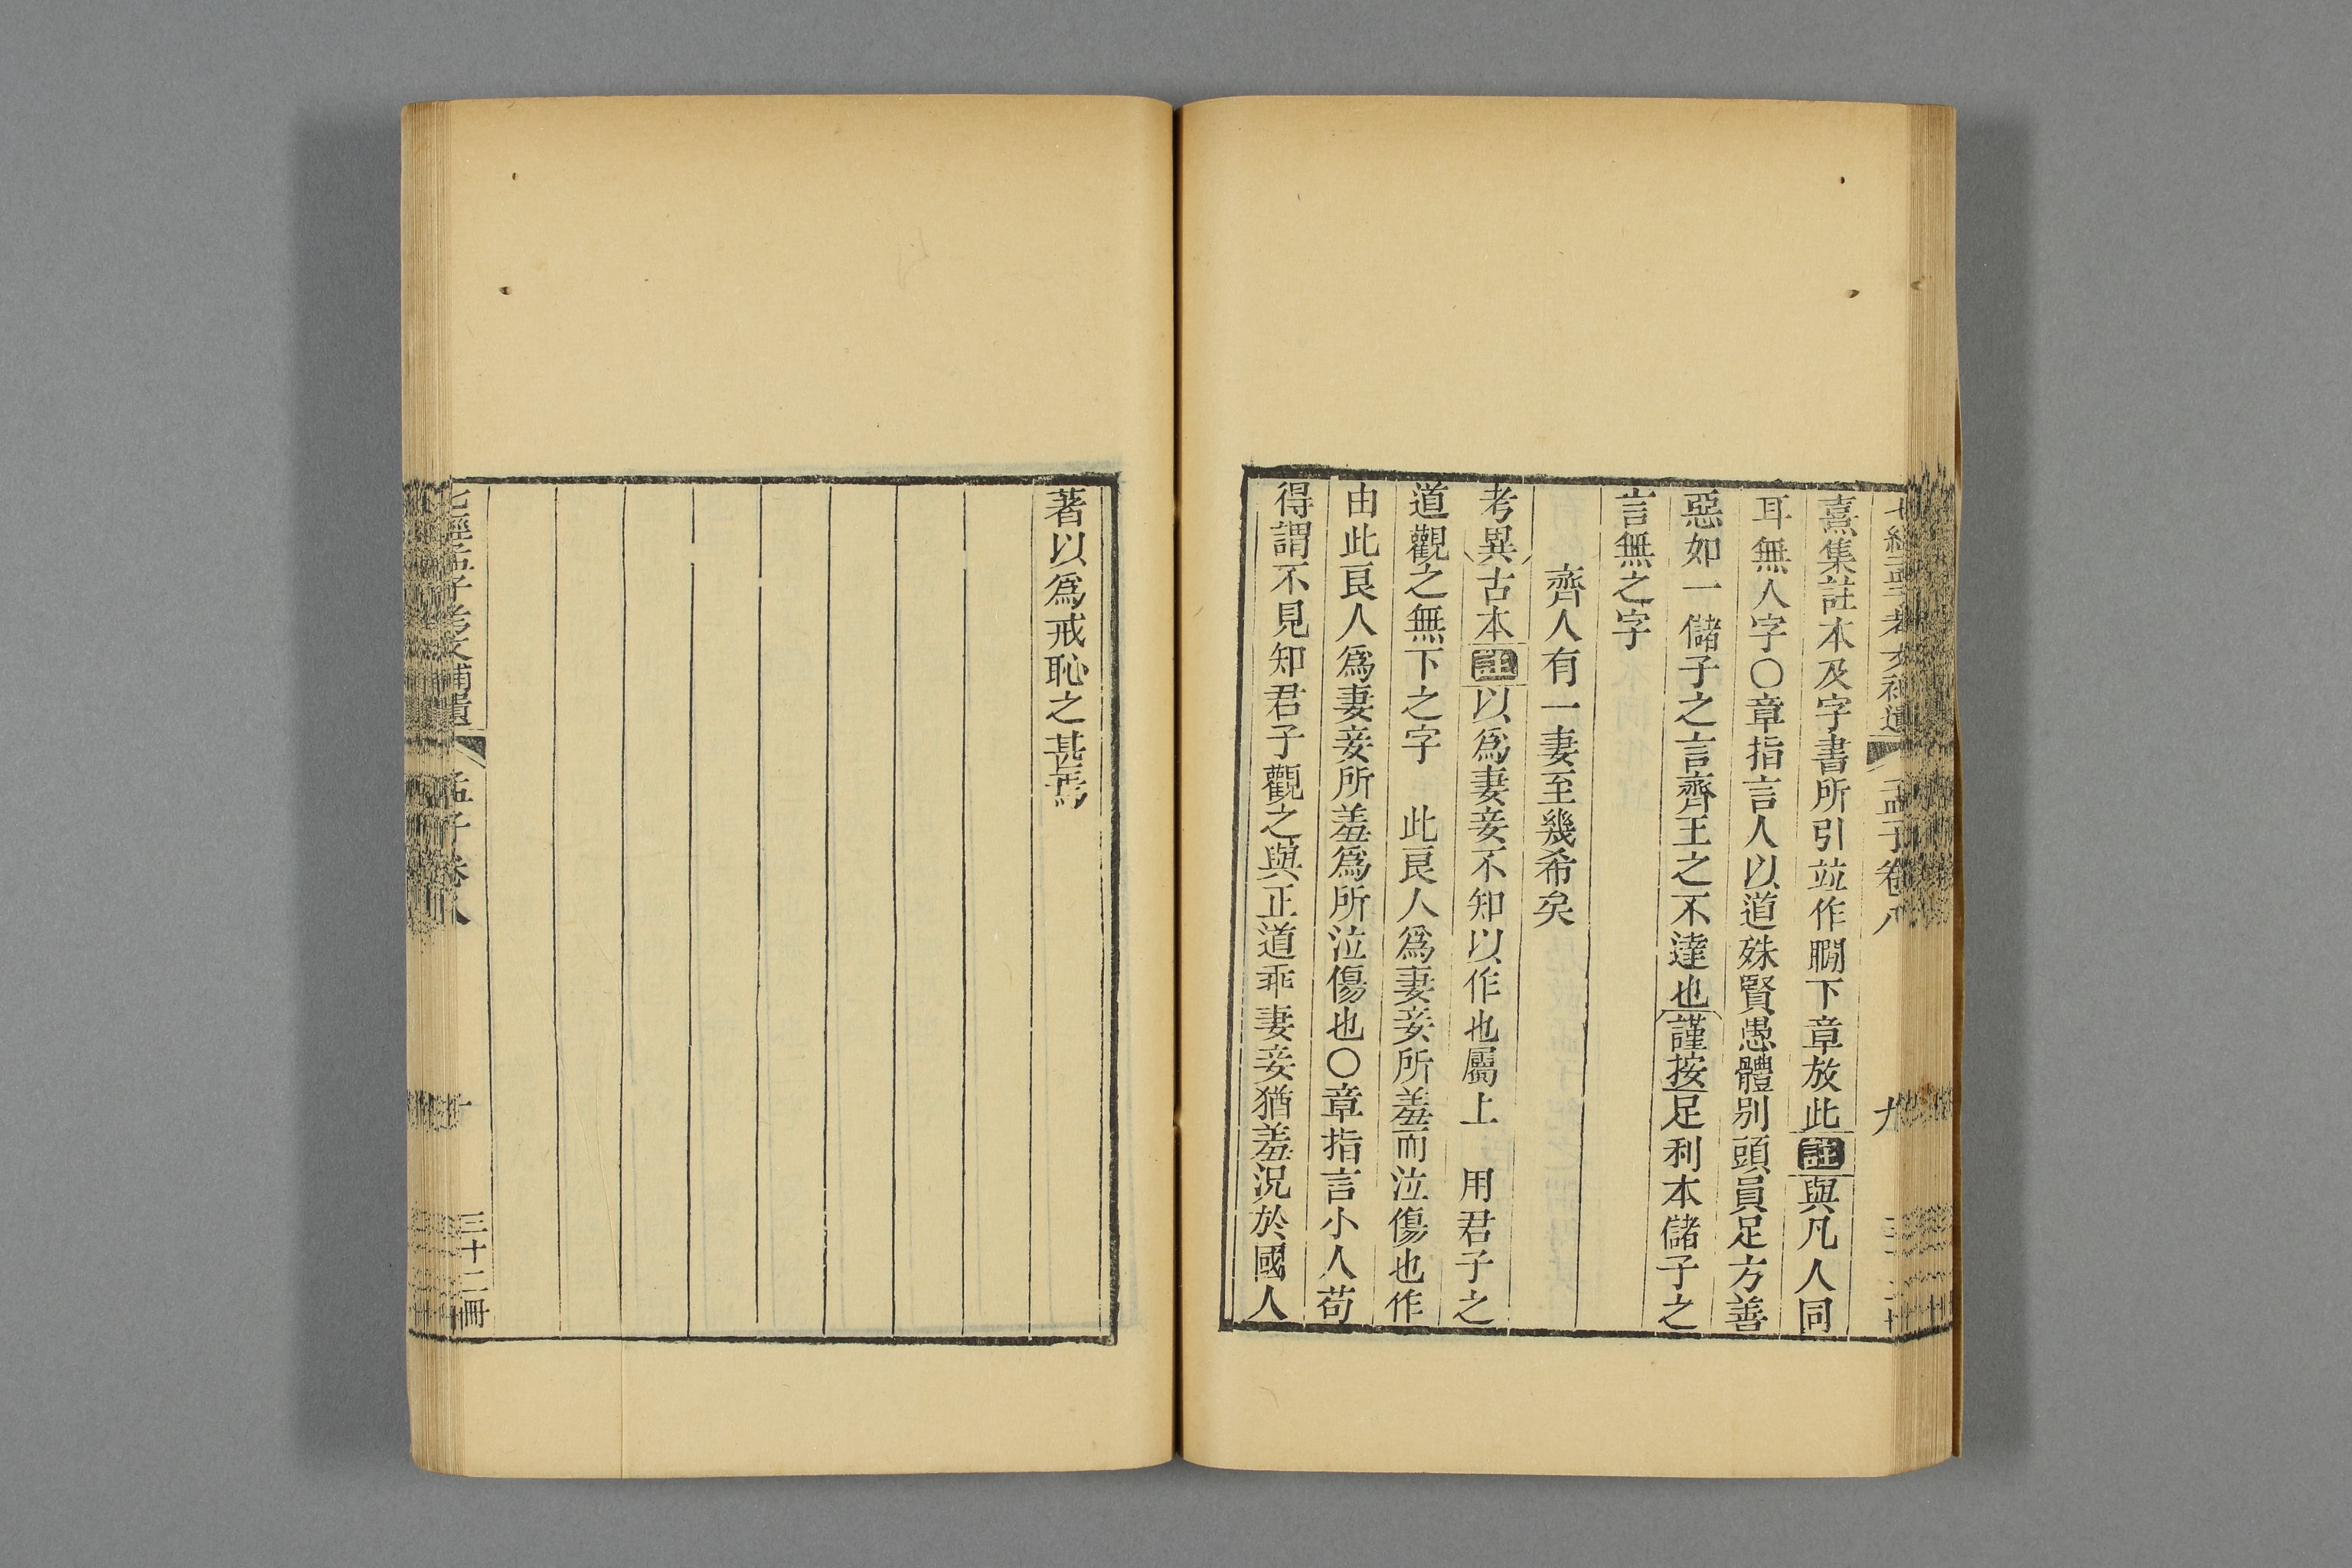 七經孟子考文補遺 孟子卷八 九
熹集註本及字書所引竝作瞷下章放此註與凡人同
耳無人字〇章指言人以道殊賢愚體別頭員足方善
惡如一儲子之言齊王之不達也謹按足利本儲子之
言無之字
齊人有一妻至幾希矣
考異古本註以爲妻妾不知以作也屬上　用君子之
道觀之無下之字　此良人爲妻妾所羞而泣傷也作
由此良人爲妻妾所羞爲所泣傷也〇章指言小人苟
得謂不見知君子觀之與正道乖妻妾猶羞況於國人
著以爲戒恥之甚焉
七經孟子考文補遺 孟子卷八 十 三十二冊